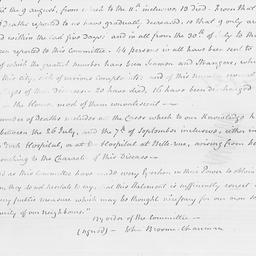 the 9 august, from to the 11th inclusive 13 died - from that
Deaths reported to us have gradually decreased, so that 9 only are
within the last five days: and in all from the 30th of July to the
been reported to this Committee. 44 persons in all have been sent to
of which the greatest number have been Seamen and Strangers, who
this city, sick of various complaints: and of this number
of their Diseases 20 have died, 16 have been discharged
the House most of them convalescent
number of deaths includes all the Cases which to our knowledge
between the 26 July, and the 7th of September inclusive, either in
Hospital, or at the Hospital at Belle-vue, arising from
touching to the Causes of this Disease
as this Committee have made every Exertion in their Power to obtain
they do not hesitate to say, that this Statement is sufficiently correct
any public measure which may be thought necessary for our
of our neighbours."
By order of the Committee
(signed) - John Broome Chairman